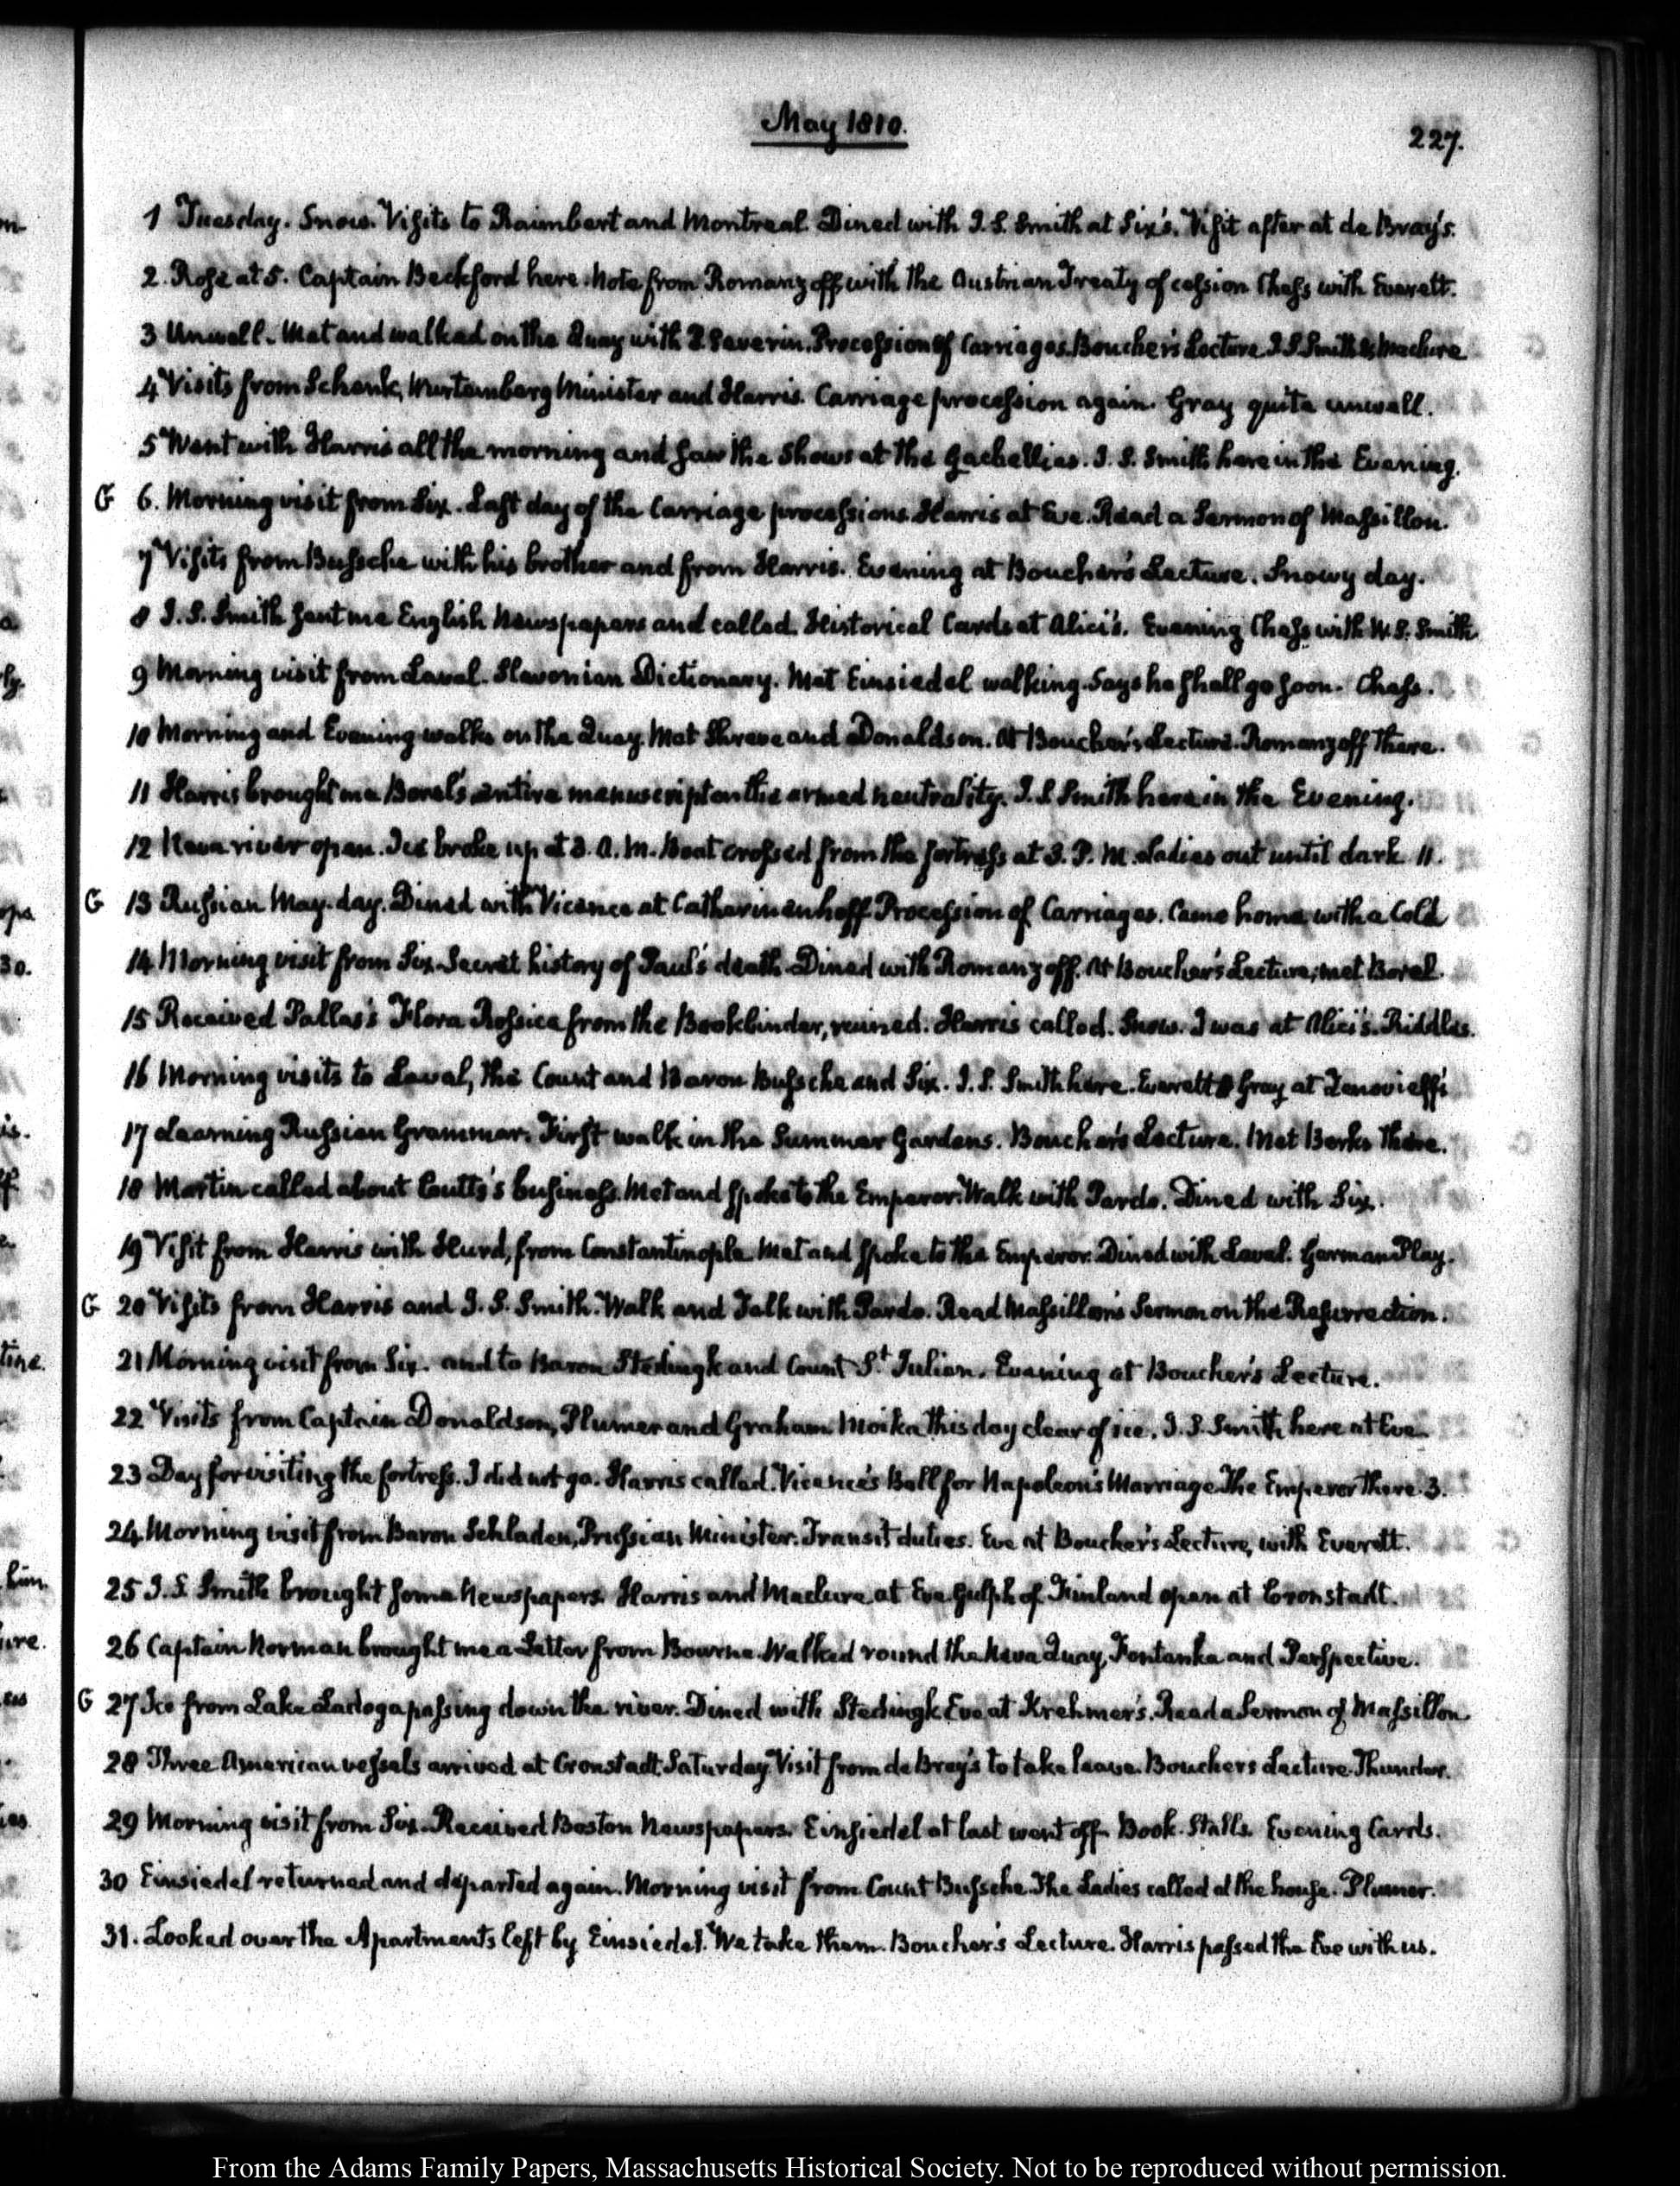 May 1810.
227.
1 Tuesday. Snow. Visits to Raimbert and Montreal. Dined with J. S. Smith at Six's. Visit after at de Bray's.
2. Rose at 5. Captain Beckford here. Note from Romanzoff with the Austrian Treaty of cession Chess with Everett.
3 Unwell. Met and walked on the Quay with Severin. Procession of Carriages. Boucher's Lecture J S Smith & Maclure
4 Visits from Schenk, Wurtemberg Minister and Harris. Carriage procession again. Gray quite unwell.
5 Went with Harris all the morning and saw the Shows at the . J. S. Smith here in the Evening.
G 6. Morning visit from Six. Last day of the Carriage processions. Harris at Eve. Read a Sermon of Massillon.
7 Visits from Bussche with his brother and from Harris. Evening at Boucher's Lecture. Snowy day.
8 J. S. Smith sent me English Newspapers and called. Historical Cards at Alici's. Evening Chess with W. S. Smith
9 Morning visit from Laval. Slavonian Dictionary. Met Einsiedel walking. Says he shall go soon. Chess.
10 Morning and Evening walks on the Quay. Met Shreve and Donaldson. At Boucher's Lecture. Romanzoff there.
11 Harris brought me Borel's entire manuscript on the armed neutrality. J. S Smith here in the Evening.
12 Neva river open. Ice broke up at 3. A. M. Boat crossed from the fortress at 3. P. M. Ladies out until dark 11.
G 13 Russian May-day. Dined with Vicence at Catharinenhoff Procession of Carriages. Came home, with a Cold
14 Morning visit from Six. Secret history of Paul's death. Dined with Romanzoff. At Boucher's Lecture; met Borel.
15 Received Pallas's Flora Rossica from the Bookbinder, ruined. Harris called. Snow. I was at Alici's. Riddles.
16 Morning visits to Laval, the Count and Baron Bussche and Six. J. S. Smith here. Everett & Gray at Zenovieff's
17 Learning Russian Grammar. First walk in the Summer Gardens. Boucher's Lecture. Met Berks there.
18 Martin called about Coutts's business. Met and spoke to the Emperor. Walk with Pardo. Dined with Six.
19 Visit from Harris with Hurd, from Constantinople. Met and spoke to the Emperor. Dined with Laval. German Play.
G 20 Visits from Harris and J. S. Smith. Walk and Talk with Pardo. Read Massillon's Sermon on the Resurrection.
21 Morning visit from Six. and to Baron Stedingk and Count St. Julien. Evening at Boucher's Lecture.
22 Visits from Captain Donaldson, Plumer and Graham. Moika this day clear of ice. J. S. Smith here at Eve.
23 Day for visiting the fortress. I did not go. Harris called. Vicence's Ball for Napoleon's Marriage. The Emperor there. 3.
24 Morning visit from Baron Schladen, Prussian Minister. Transit duties. Eve at Boucher's Lecture, with Everett.
25 J. S. Smith brought some Newspapers. Harris and Maclure at Eve. Gulph of Finland open at Cronstadt.
26 Captain Norman brought me a Letter from Bourne. Walked round the Neva Quay, Fontanka and Perspective.
G 27 Ice from Lake Ladoga passing down the river. Dined with Stedingk. Eve at Krehmer's. Read a Sermon of Massillon.
28 Three American vessels arrived at Cronstadt Saturday. Visit from de Bray's to take leave. Bouchers Lecture. Thunder.
29 Morning visit from Six. Received Boston Newspapers. Einsiedel at last went off. Book-Stalls. Evening Cards.
30 Einsiedel returned and departed again. Morning visit from Count Bussche. The Ladies called at the house. Plumer.
31. Looked over the Apartments left by Einsiedel. We take them. Boucher's Lecture. Harris passed the Eve with us.
From the Adams Family Papers, Massachusetts Historical Society. Not to be reproduced without permission.